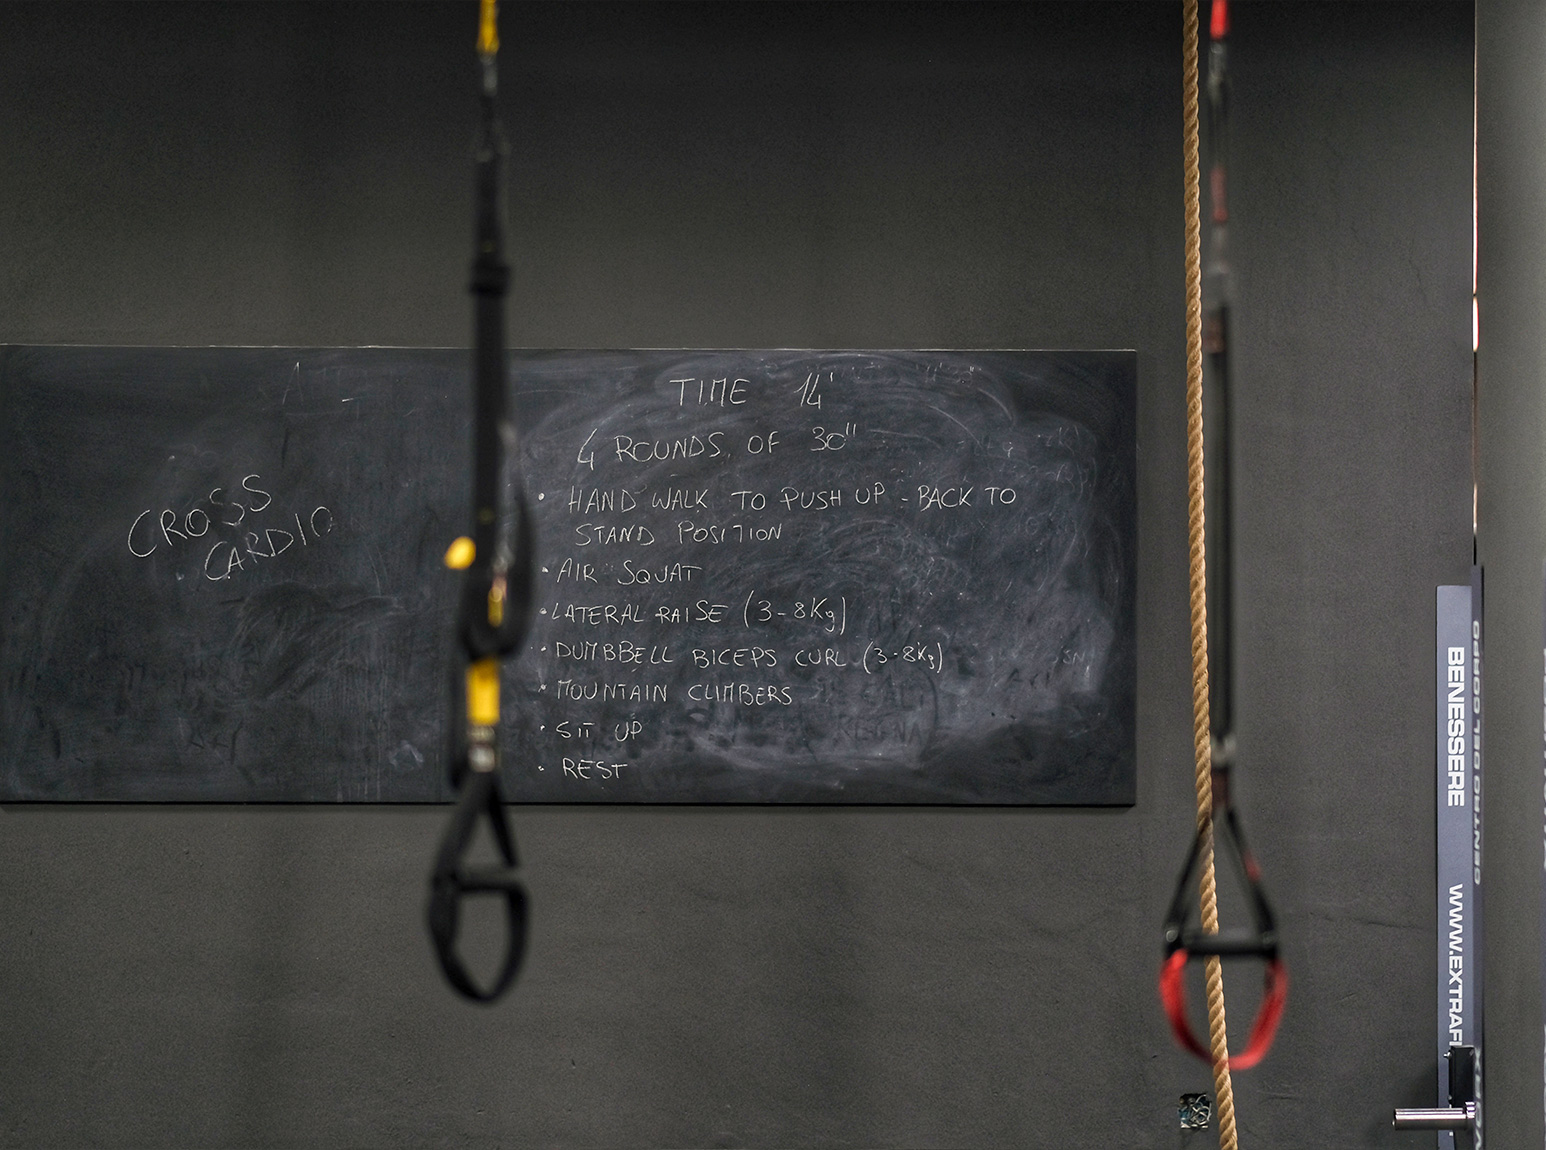 CROSS
CARDIO
TIME 14'
4 ROUNDS OF 30"
• HAND WALK TO PUSH UP - BACK TO
STAND POSITION
• AIR SQUAT
• LATERAL RAISE (3-8Kg)
• DUMBBELL BICEPS CURL (3-8Kg)
• MOUNTAIN CLIMBERS
• SIT UP
• REST
BENESSERE
WWW.EXTRAF
CENTRO DEL CORPO